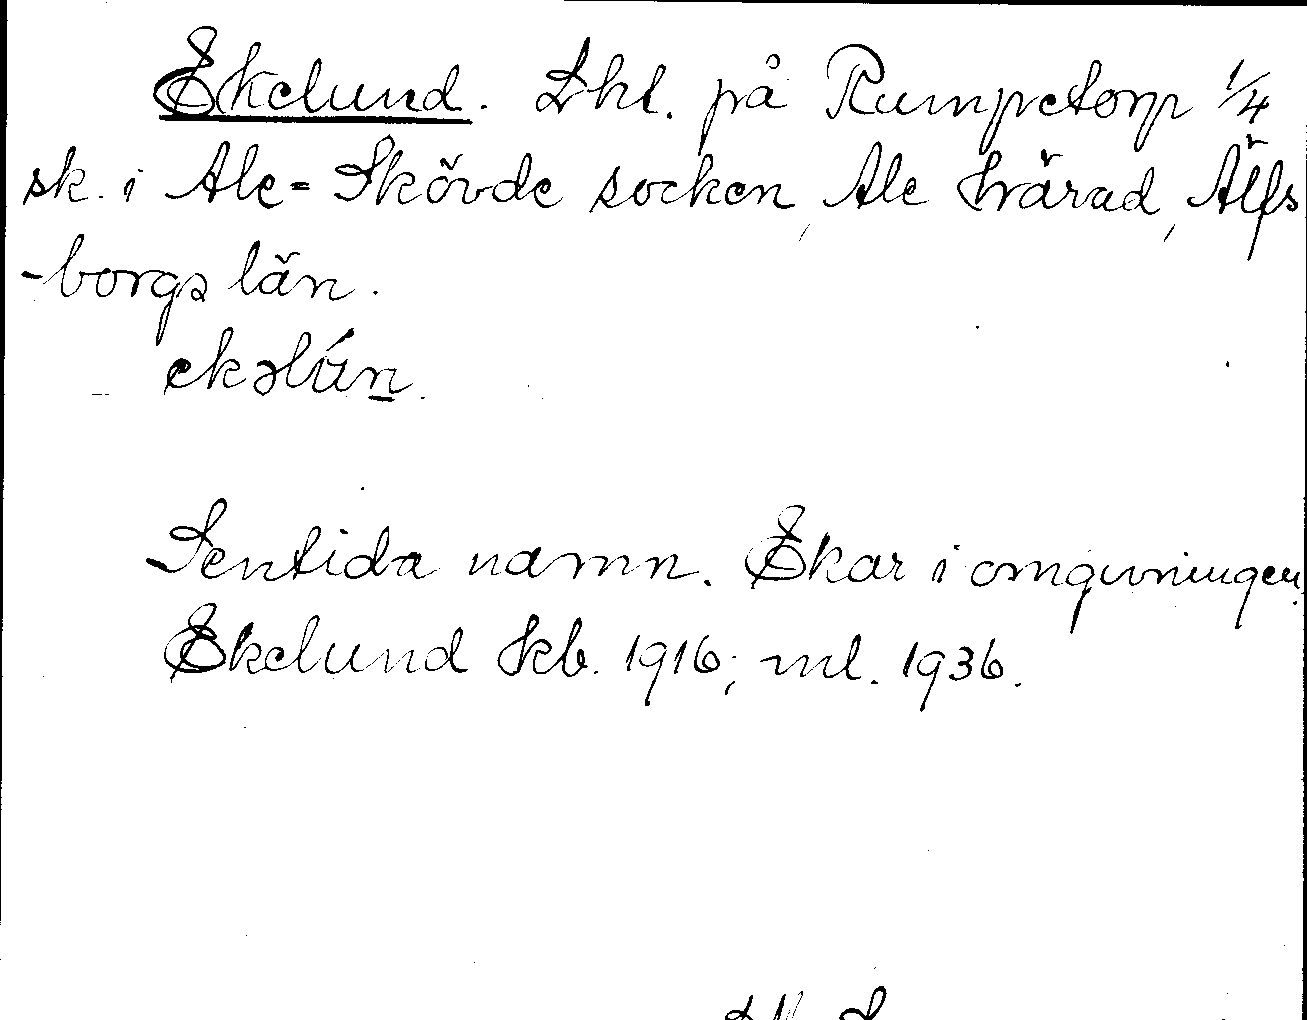 Ekelund. Lht. på Rumpetorp 1/4
sk. i Ale-Skövde socken, Ale härad, Älfs
-borgs län.
ekəlún
Sentida namn. Ekar i omgivningen.
Ekelund Skb. 1916; ml. 1936.